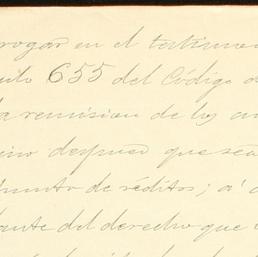 rogar en el testimon
culo 655 del Código d
la remision de los au
cino despues que sea
punto de réditos; a' c
tante del derecho que